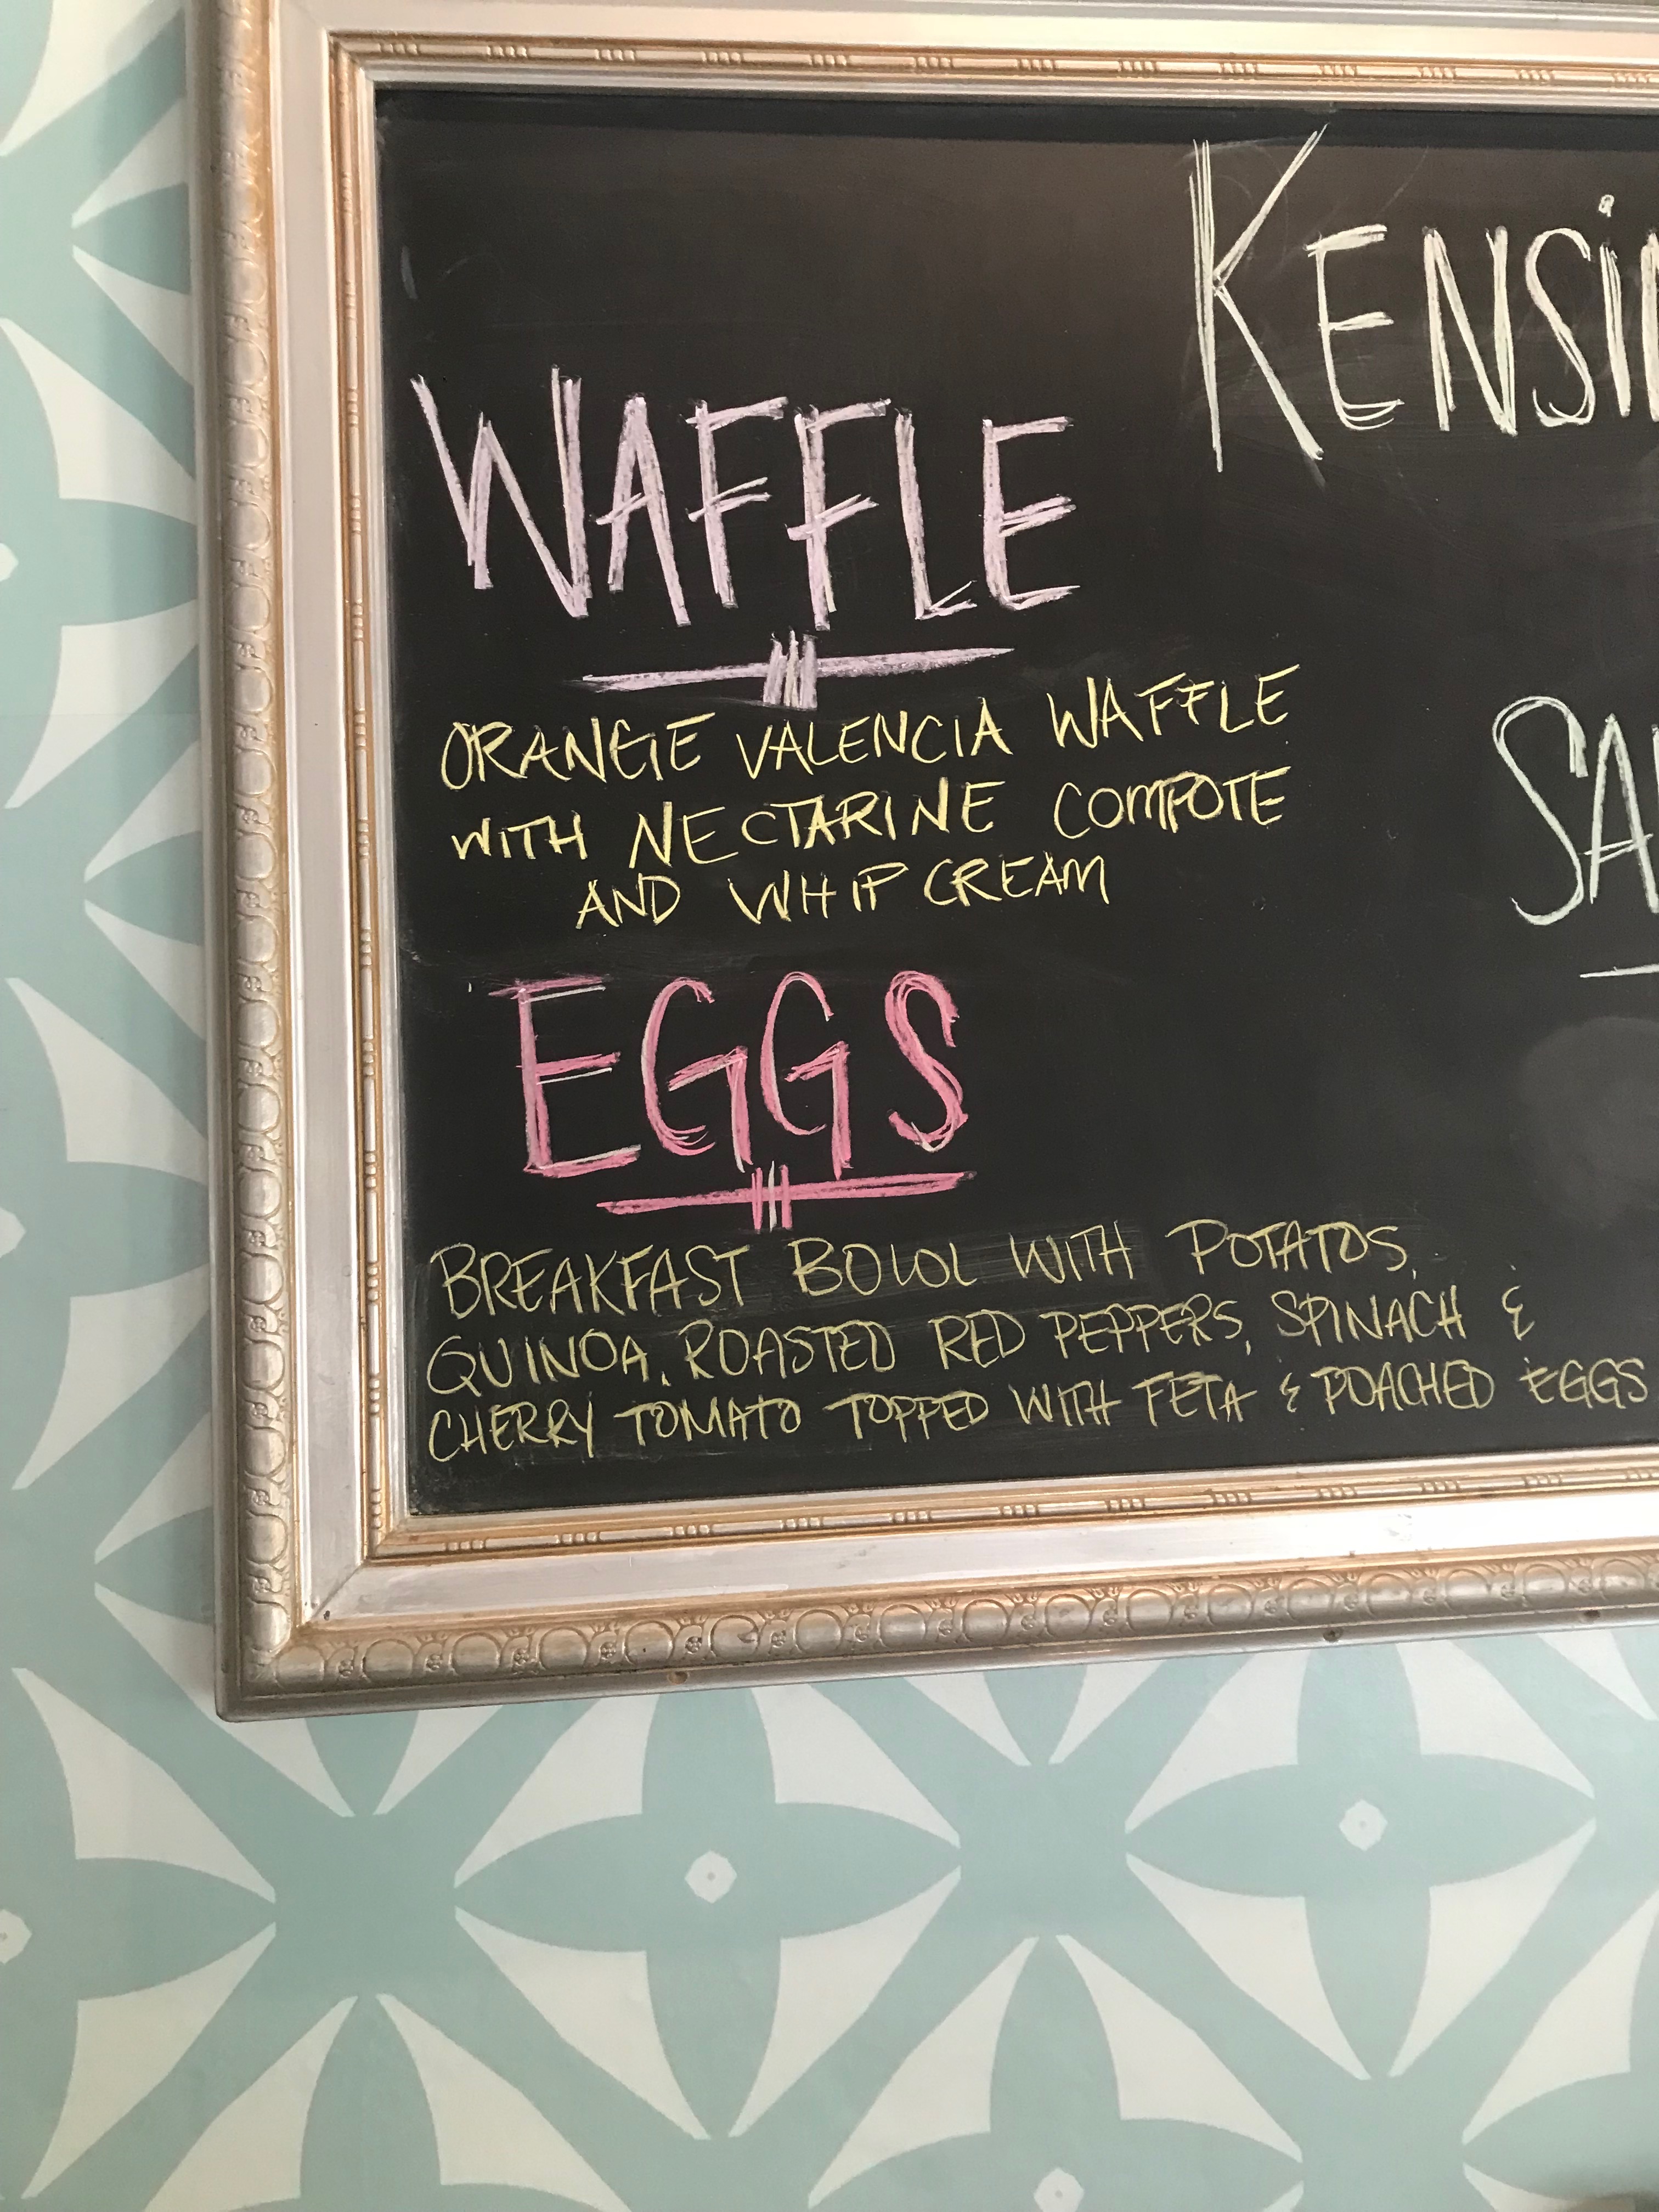 KENSIN
WAFFLE
ORANGE VALENCIA WAFFLE
WITH NECTARINE COMPOTE
AND WHIP CREAM
SA
EGGS
BREAKFAST BOWL WITH POTATOS,
QUINOA, ROASTED RED PEPPERS, SPINACH &
CHERRY TOMATO TOPPED WITH FETA & POACHED EGGS